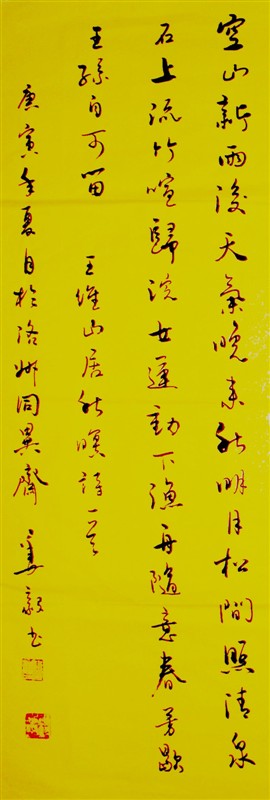 空山新雨後天氣晚來秋明月松間照清泉
石上流竹喧歸浣女蓮動下漁舟隨意春芳歇
王孫自可留 王維山居秋暝詩一首
庚寅年夏月於洛同異齋 書